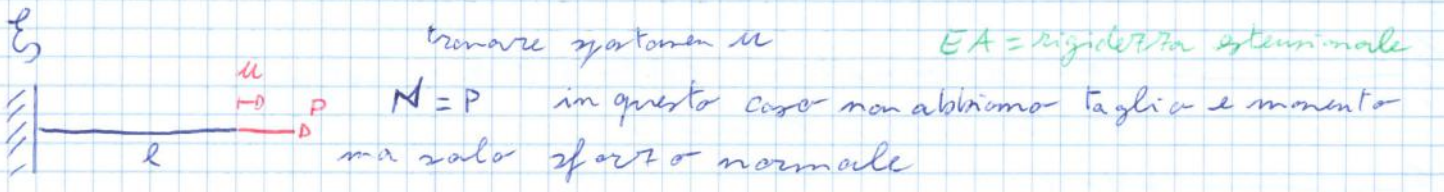 trovare spostamen u EA = rigidezza estensionale
u
P N = P in questo caso non abbiamo taglio e momento
l ma solo sforzo normale